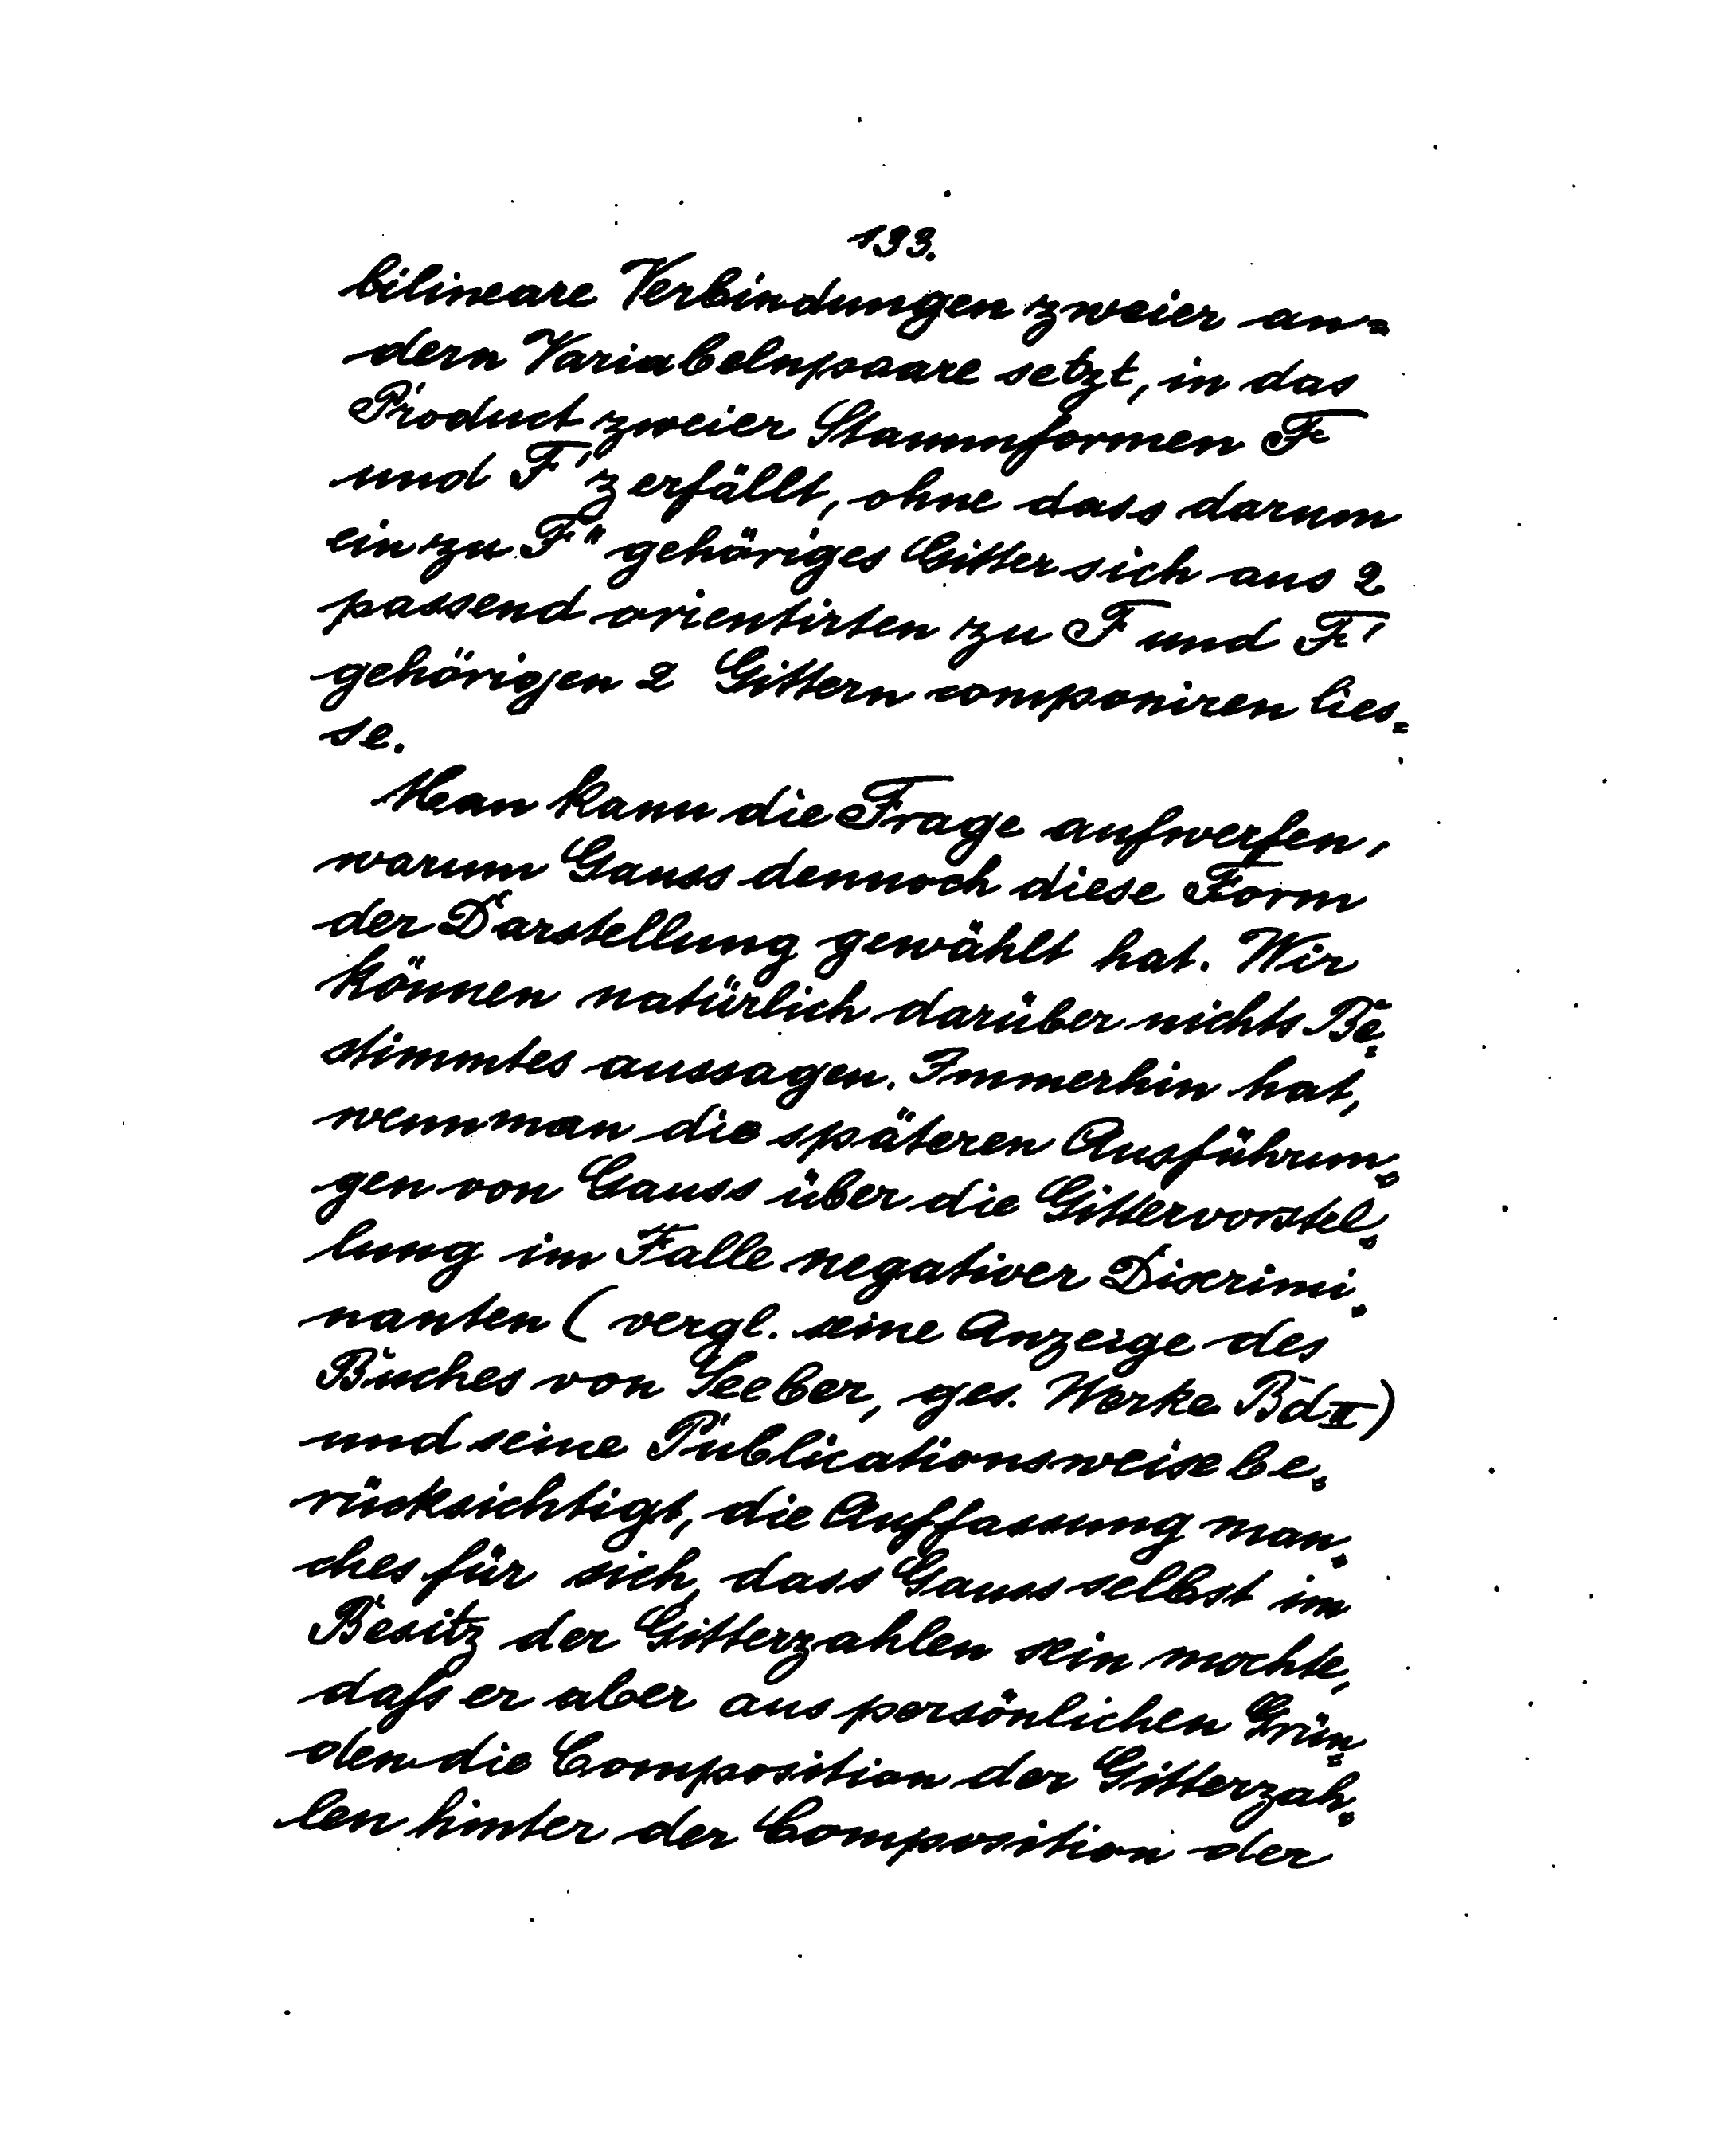 133.
bilineare Verbindungen zweier an=
dern Variabelnpaare setzt, in das
Product zweier Stammformen F
und F' zerfällt, ohne dass darum
ein zu F" gehöriges Gitter sich aus 2
passend orientirten zu F und F'
gehörigen 2 Gittern componiren lies=
se.
Man kann die Frage aufwerfen,
warum Gauss dennoch diese Form
der Darstellung gewählt hat. Wir
können natürlich darüber nichts Be=
stimmtes aussagen. Immerhin hat,
wenn man die späteren Ausführun=
gen von Gauss über die Gittervorstel=
lung im Falle negativer Discrimi=
nanten (vergl. seine Anzeige des
Buches von Seeber, ges. Werke Bd II)
und seine Publicationsweise be=
rücksichtigt, die Auffassung man=
ches für sich, dass Gauss selbst im
Besitz der Gitterzahlen sein mochte,
daſs er aber aus persönlichen Grün=
den die Composition der Gitterzah=
len hinter der Composition der